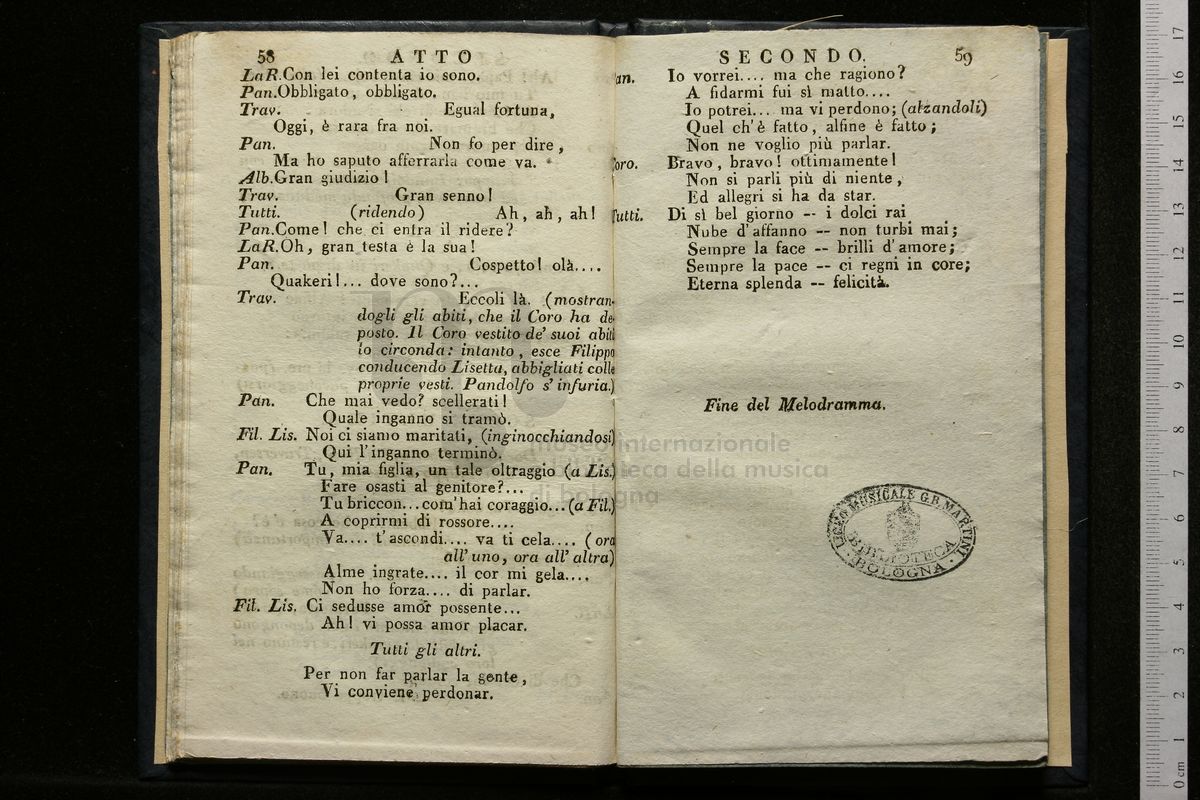 58 ATTO
LaR.Con lei contenta io sono.
Pan.Obbligato, obbligato.
Trav. Egual fortuna,
Oggi, è rara fra noi.
Pan. Non fo per dire,
Ma ho saputo afferrarla come va.
Alb.Gran giudizio!
Trav. Gran senno!
Tutti. (ridendo) Ah, ah, ah!
Pan.Come! che ci entra il ridere?
LaR.Oh, gran testa è la sua!
Pan. Cospetto! olà....
Quakeri!... dove sono?...
Trav. Eccoli là. (mostran-
dogli gli abiti, che il Coro ha de-
posto. Il Coro vestito de' suoi abiti
lo circonda: intanto, esce Filippo
conducendo Lisetta, abbigliati colle
proprie vesti. Pandolfo s'infuria.)
Pan. Che mai vedo? scellerati!
Quale inganno si tramò.
Fil. Lis. Noi ci siamo maritati, (inginocchiandosi)
Qui l'inganno terminò.
Pan. Tu, mia figlia, un tale oltraggio (a Lis.)
Fare osasti al genitore?...
Tu briccon...com'hai coraggio...(a Fil.)
A coprirmi di rossore....
Va.... t'ascondi.... va ti cela.... (ora
all'uno, ora all'altra)
Alme ingrate.... il cor mi gela....
Non ho forza.... di parlar.
Fil. Lis. Ci sedusse amor possente...
Ah! vi possa amor placar.
Tutti gli altri.
Per non far parlar la gente,
Vi conviene perdonar.
SECONDO. 59
an. Io vorrei.... ma che ragiono?
A fidarmi fui sì matto....
Io potrei... ma vi perdono; (alzandoli)
Quel ch'è fatto, alfine è fatto;
Non ne voglio più parlar.
Coro. Bravo, bravo! ottimamente!
Non si parli più di niente,
Ed allegri si ha da star.
Tutti. Di sì bel giorno -- i dolci rai
Nube d'affanno -- non turbi mai;
Sempre la face -- brilli d'amore;
Sempre la pace -- ci regni in core;
Eterna splenda -- felicità.
Fine del Melodramma.
museo internazionale
e biblioteca della musica
di bologna
LICEO MUSICALE G.B. MARTINI
BIBLIOTECA
· BOLOGNA ·
0 cm 1 2 3 4 5 6 7 8 9 10 11 12 13 14 15 16 17